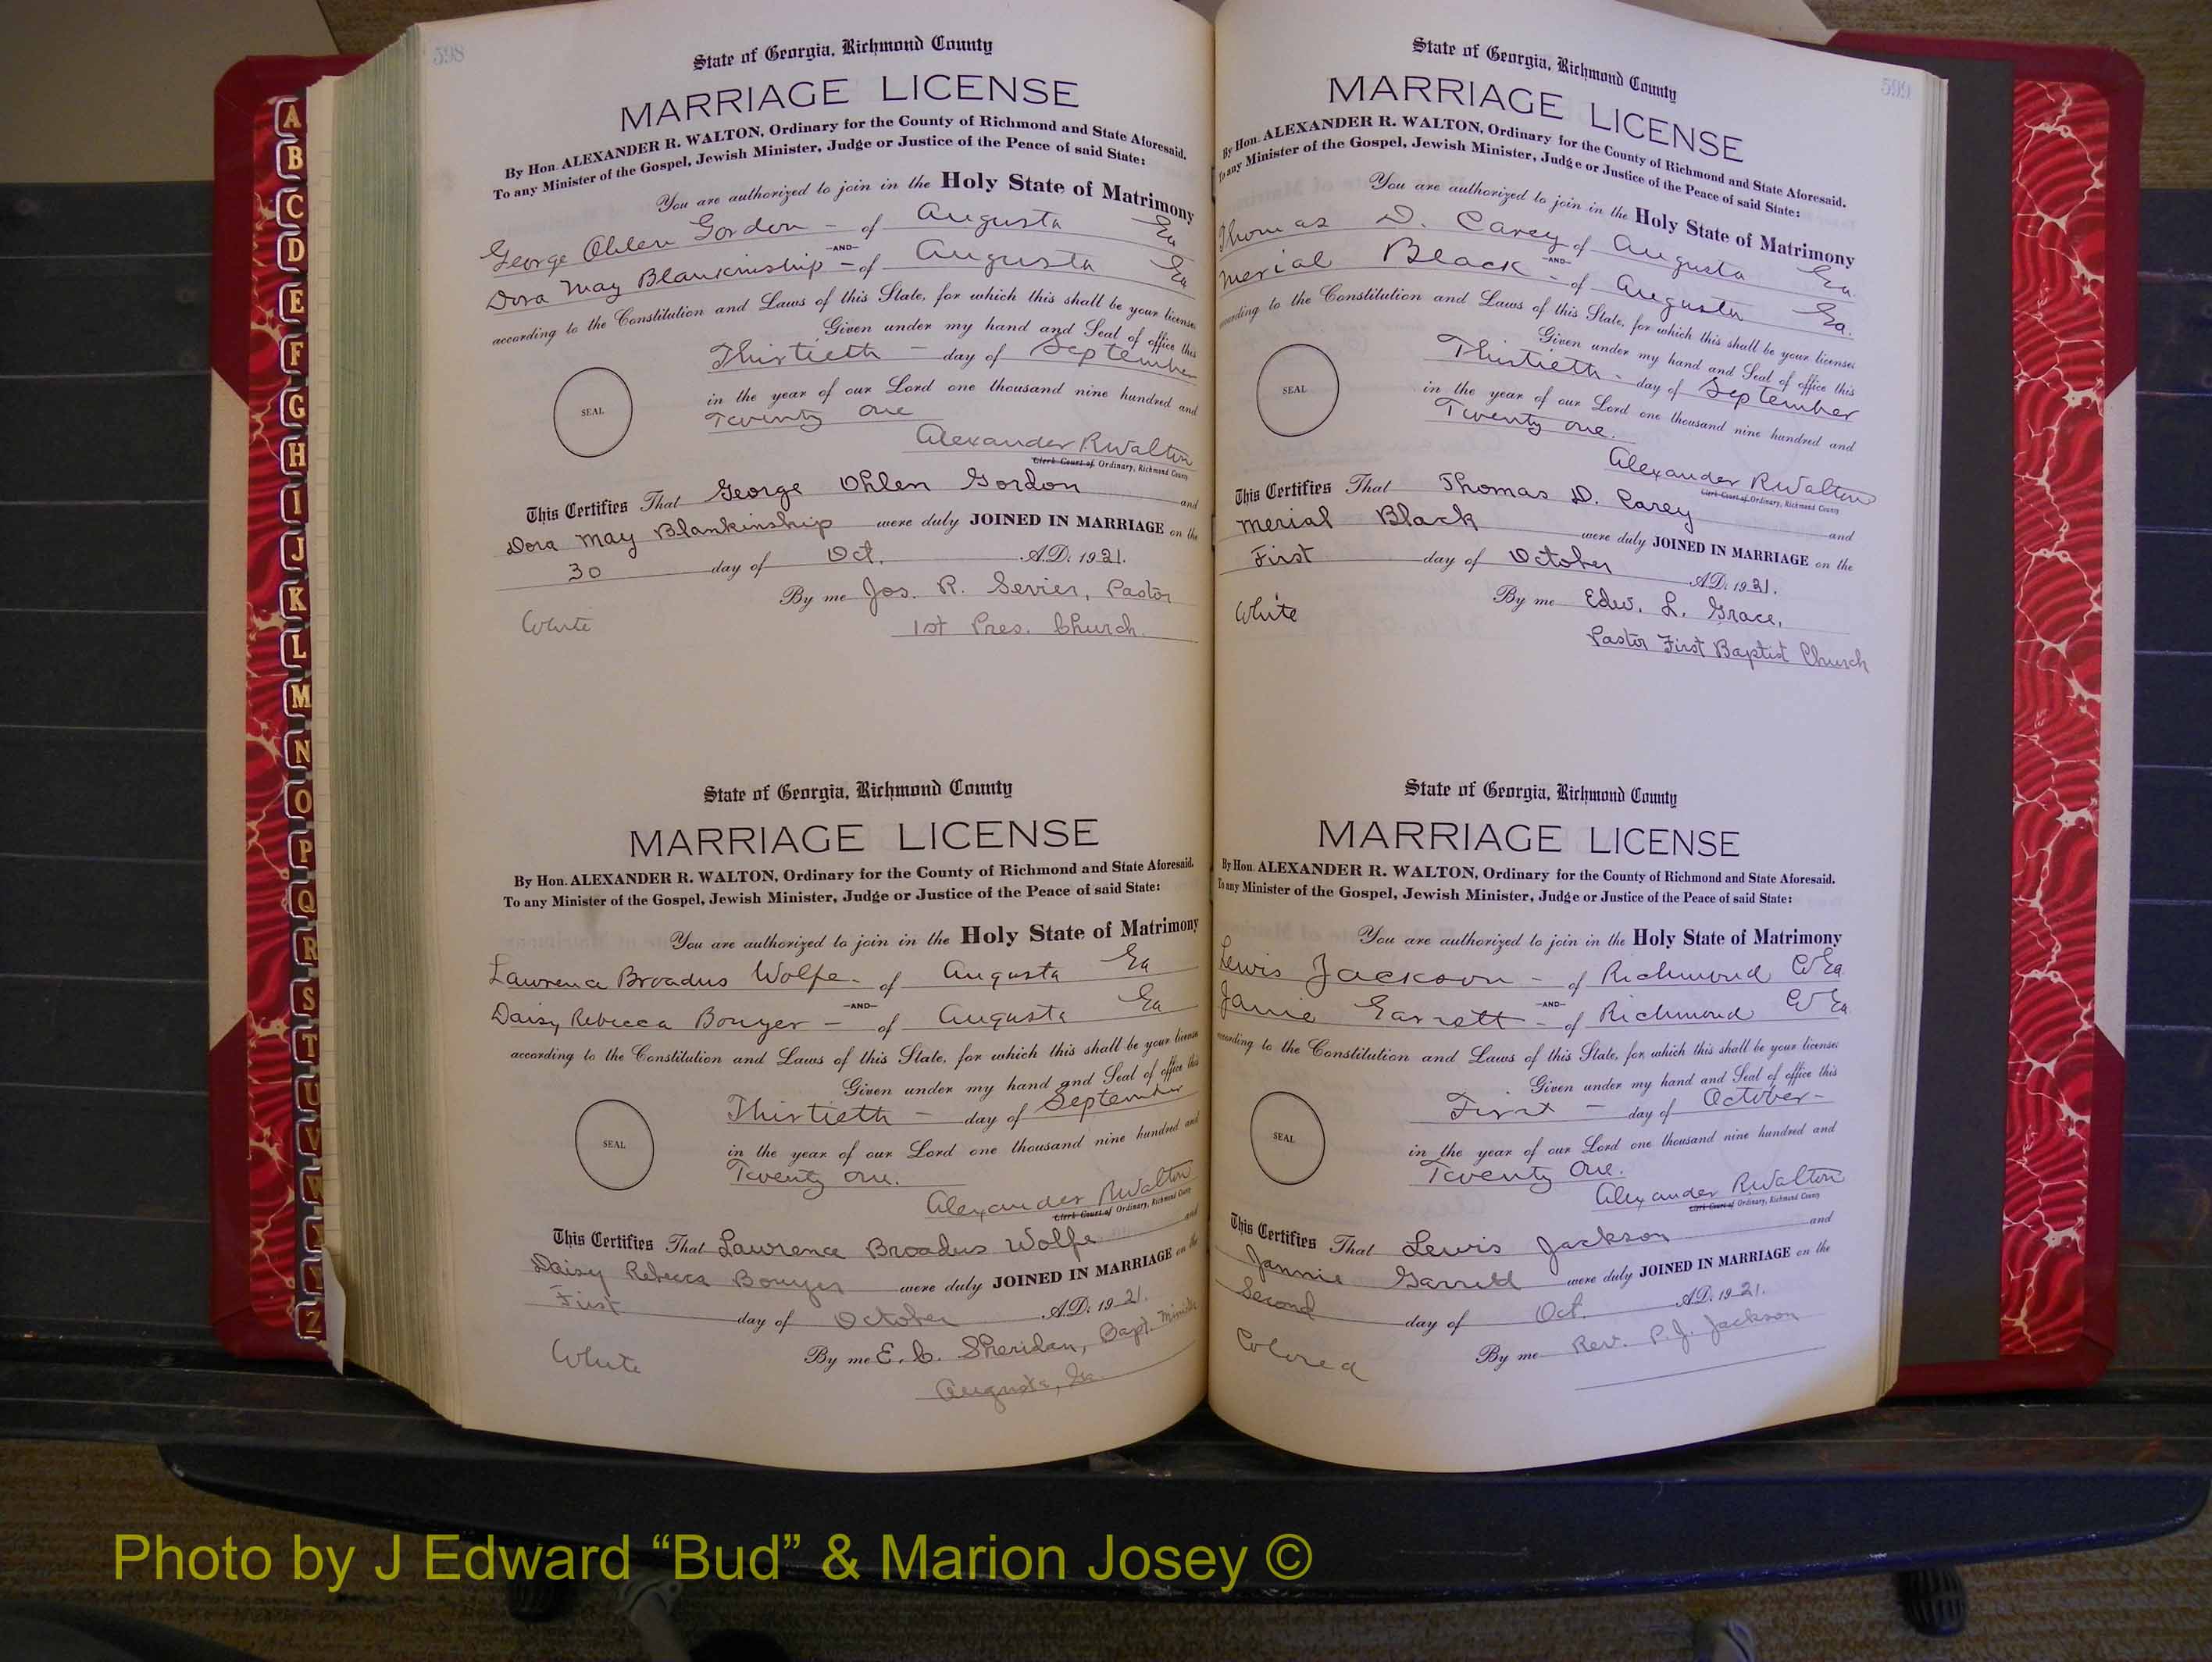 598
State of Georgia, Richmond County
MARRIAGE LICENSE
By Hon. ALEXANDER R. WALTON, Ordinary for the County of Richmond and State Aforesaid.
To any Minister of the Gospel, Jewish Minister, Judge or Justice of the Peace of said State:
You are authorized to join in the Holy State of Matrimony
George Ohlen Gordon - of Augusta Ga
-AND-
Dora May Blankinship - of Augusta Ga
according to the Constitution and Laws of this State, for which this shall be your license
Given under my hand and Seal of office this
Thirtieth - day of September
SEAL
in the year of our Lord one thousand nine hundred and
Twenty one
Alexander R Walton
Clerk Court of Ordinary, Richmond County
This Certifies That George Ohlen Gordon and
Dora May Blankinship were duly JOINED IN MARRIAGE on the
30 day of Oct. A.D. 1921.
By me Jos. R. Sevier, Pastor
White
1st Pres. Church.
State of Georgia, Richmond County
MARRIAGE LICENSE
By Hon. ALEXANDER R. WALTON, Ordinary for the County of Richmond and State Aforesaid.
To any Minister of the Gospel, Jewish Minister, Judge or Justice of the Peace of said State:
You are authorized to join in the Holy State of Matrimony
Lawrence Broadus Wolfe - of Augusta Ga
-AND-
Daisy Rebecca Bouyer - of Augusta Ga
according to the Constitution and Laws of this State, for which this shall be your license
Given under my hand and Seal of office this
Thirtieth - day of September
SEAL
in the year of our Lord one thousand nine hundred and
Twenty one.
Alexander R Walton
Clerk Court of Ordinary, Richmond County
This Certifies That Lawrence Broadus Wolfe and
Daisy Rebecca Bouyer were duly JOINED IN MARRIAGE on the
First day of October A.D. 1921.
By me E. C. Sheridan, Bapt. Minister
White
Augusta, Ga.
599
State of Georgia, Richmond County
MARRIAGE LICENSE
By Hon. ALEXANDER R. WALTON, Ordinary for the County of Richmond and State Aforesaid.
To any Minister of the Gospel, Jewish Minister, Judge or Justice of the Peace of said State:
You are authorized to join in the Holy State of Matrimony
Thomas D. Carey of Augusta Ga.
-AND-
Merial Black - of Augusta Ga.
according to the Constitution and Laws of this State, for which this shall be your license
Given under my hand and Seal of office this
Thirtieth - day of September
SEAL
in the year of our Lord one thousand nine hundred and
Twenty one.
Alexander R Walton
Clerk Court of Ordinary, Richmond County
This Certifies That Thomas D. Carey and
Merial Black were duly JOINED IN MARRIAGE on the
First day of October A.D. 1921.
By me Edw. L. Grace,
White
Pastor First Baptist Church
State of Georgia, Richmond County
MARRIAGE LICENSE
By Hon. ALEXANDER R. WALTON, Ordinary for the County of Richmond and State Aforesaid.
To any Minister of the Gospel, Jewish Minister, Judge or Justice of the Peace of said State:
You are authorized to join in the Holy State of Matrimony
Lewis Jackson - of Richmond Co Ga
-AND-
Janie Garrett - of Richmond Co Ga
according to the Constitution and Laws of this State, for which this shall be your license
Given under my hand and Seal of office this
First - day of October -
SEAL
in the year of our Lord one thousand nine hundred and
Twenty One.
Alexander R Walton
Clerk Court of Ordinary, Richmond County
This Certifies That Lewis Jackson and
Jannie Garrett were duly JOINED IN MARRIAGE on the
Second day of Oct. A.D. 1921.
By me Rev. P. J. Jackson
Colored
A
B
C
D
E
F
G
H
I
J
K
L
M
N
O
P
Q
R
S
T
U
V
W
X
Y
Z
Photo by J Edward “Bud” & Marion Josey ©